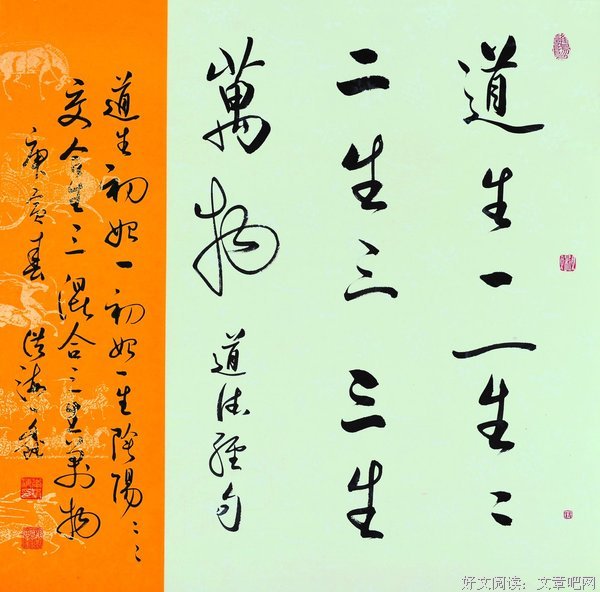 道生一一生二
二生三三生
萬物
道德經句
道生初始一初始一生陰陽々々
交合生三混合三生萬物
庚寅春洪海
好文阅读：文章吧网